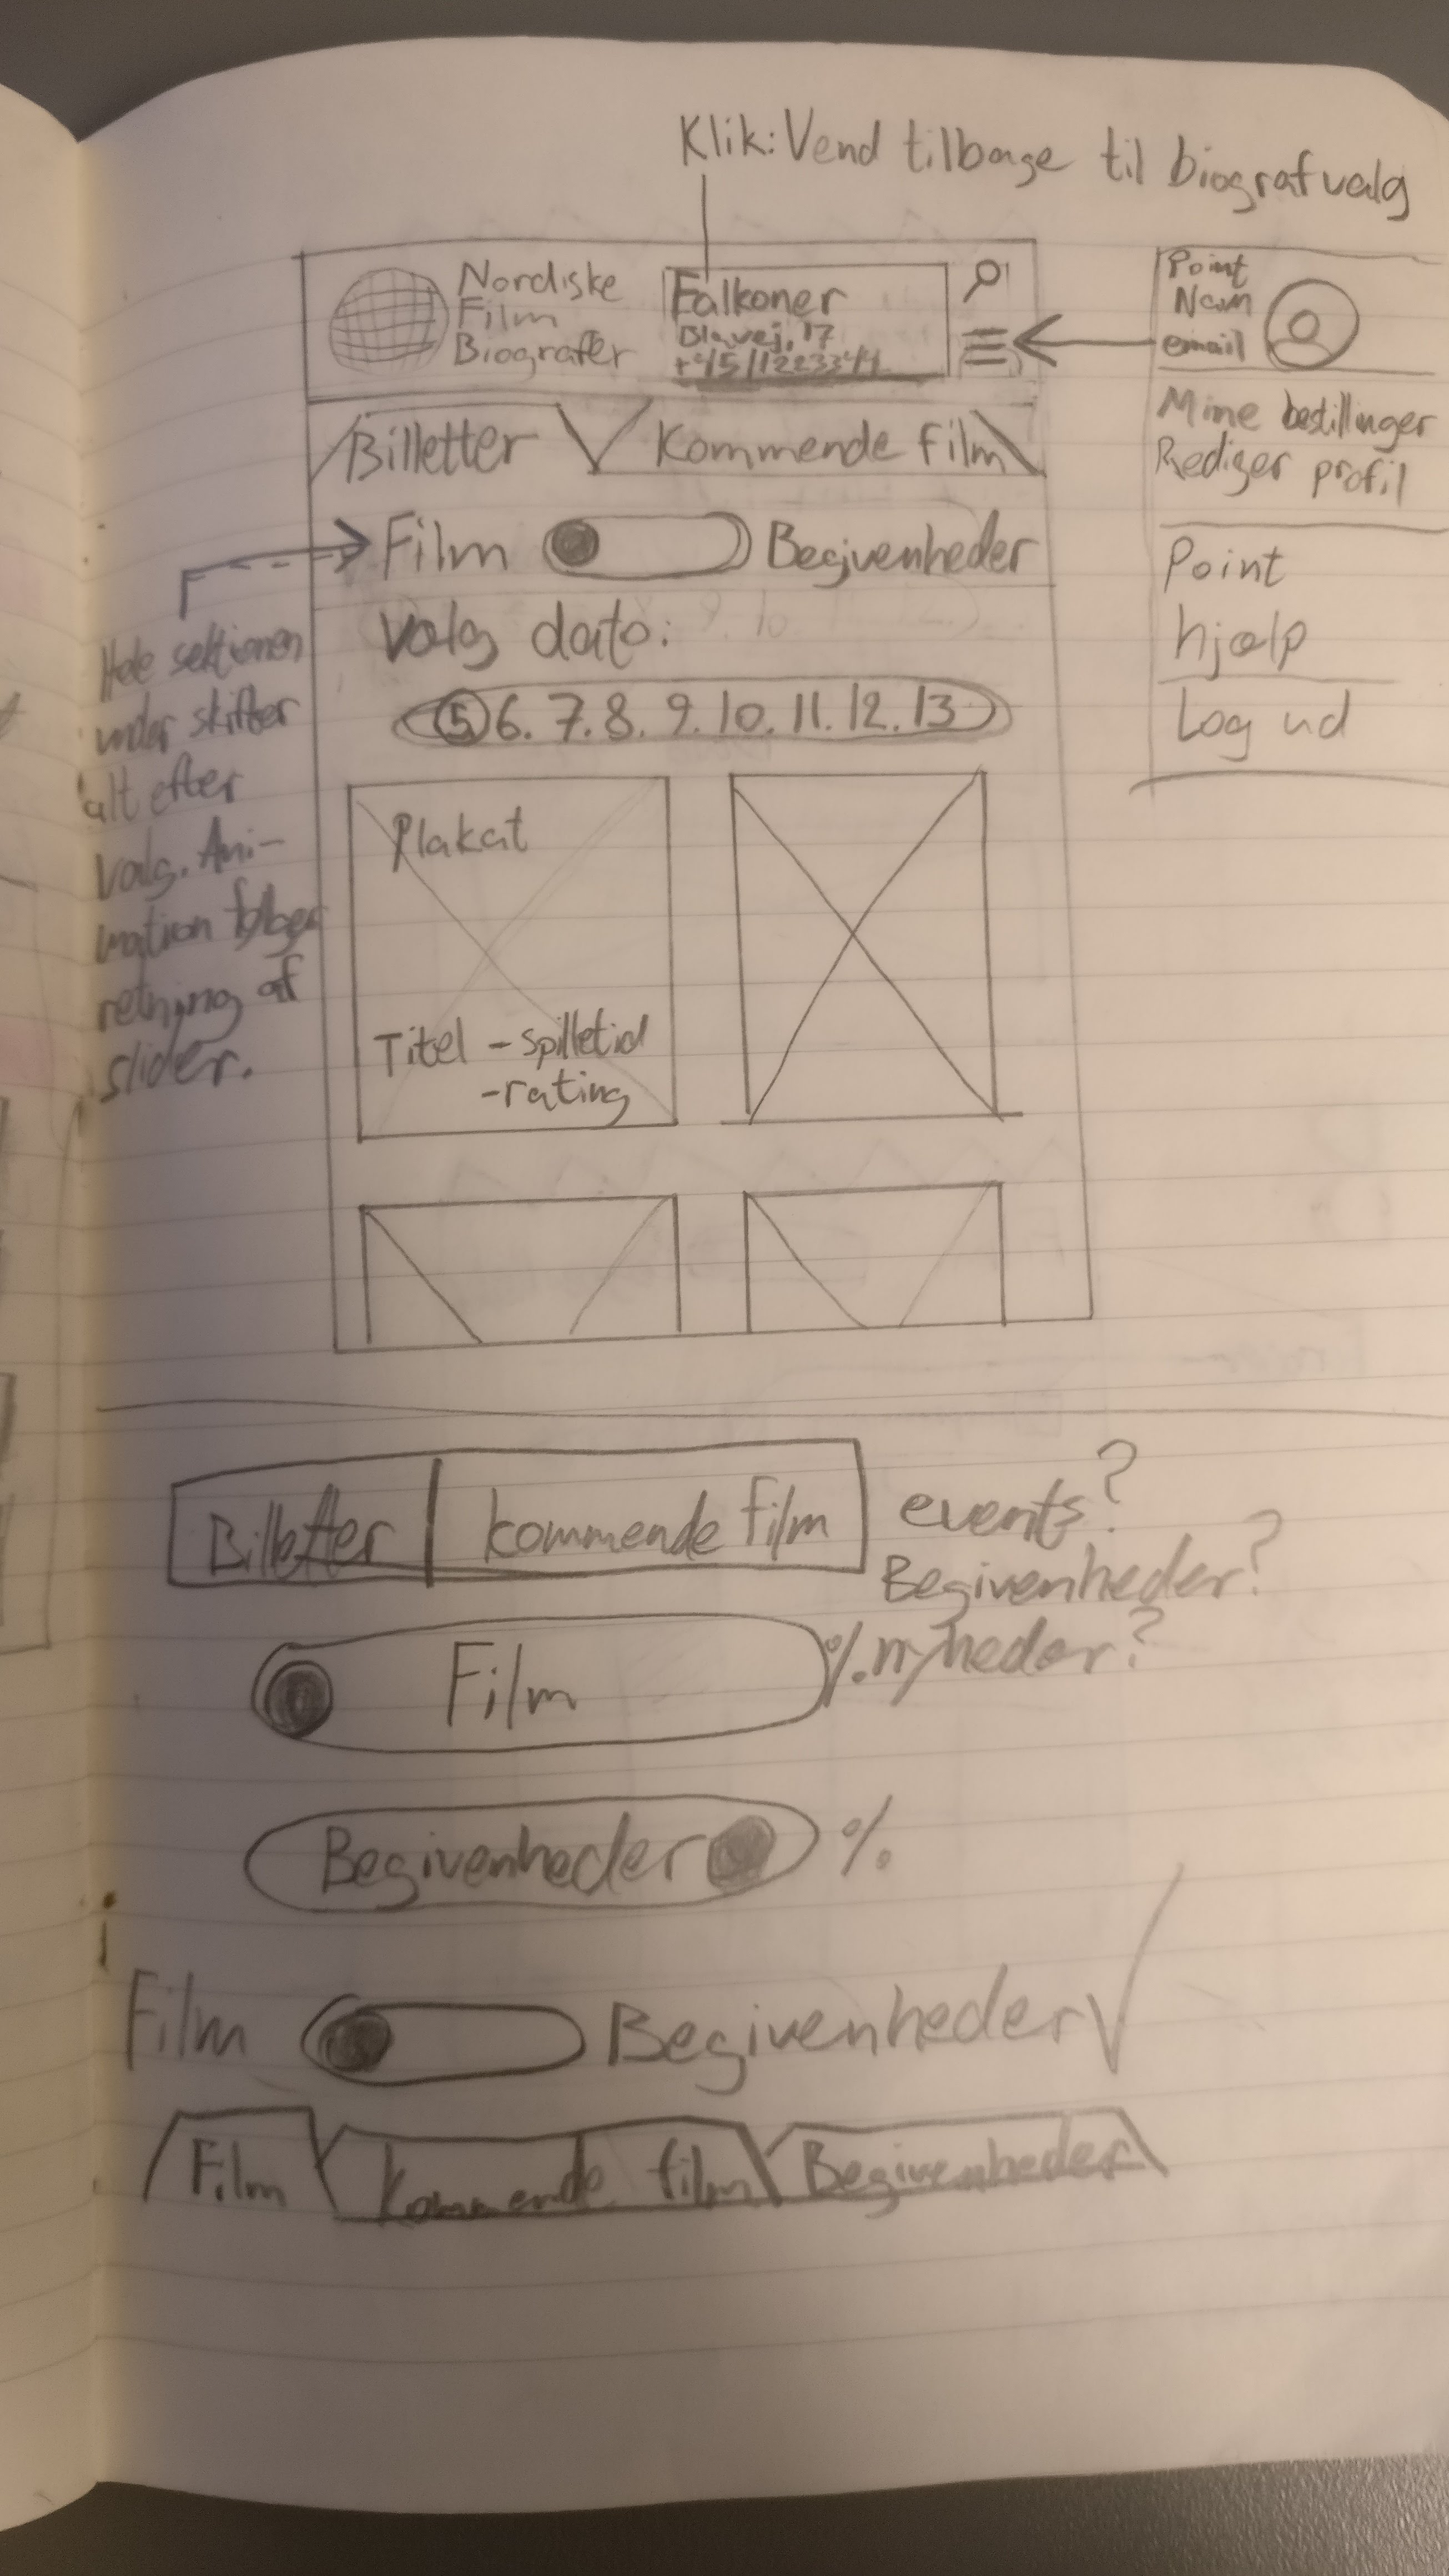 Klik: Vend tilbage til biografvalg
Nordiske
Film
Biografer
Falkoner
+45 11223344
Point
Navn
email
Mine bestillinger
Rediger profil
Point
hjælp
Log ud
Billetter
Kommende film
Film
Begivenheder
Hele sektionen
under skifter
alt efter
valg. Ani-
mation følger
retning af
slider.
Vælg dato:
5 6. 7. 8. 9. 10. 11. 12. 13
Plakat
Titel - spilletid
- rating
Billetter
kommende film
events?
Begivenheder?
Film
%. nyheder?
Begivenheder
%
Film
Begivenheder √
Film
Kommende film
Begivenheder